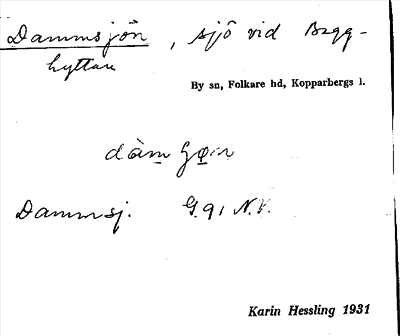 Dammsjön, sjö vid Bagg-
hyttan
By sn, Folkare hd, Kopparbergs l.
Dammsj. G. 91 N.V.
Karin Hessling 1931